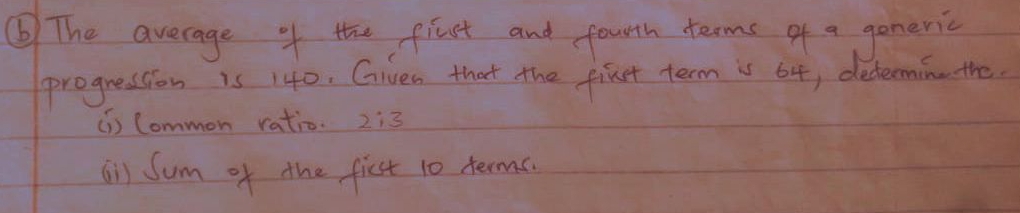 (b) The average of the first and fourth terms of a goneric
progression is 140. Given that the first term is 64, determine the.
(i) Common ratio. 2:3
(ii) Sum of the first 10 terms.